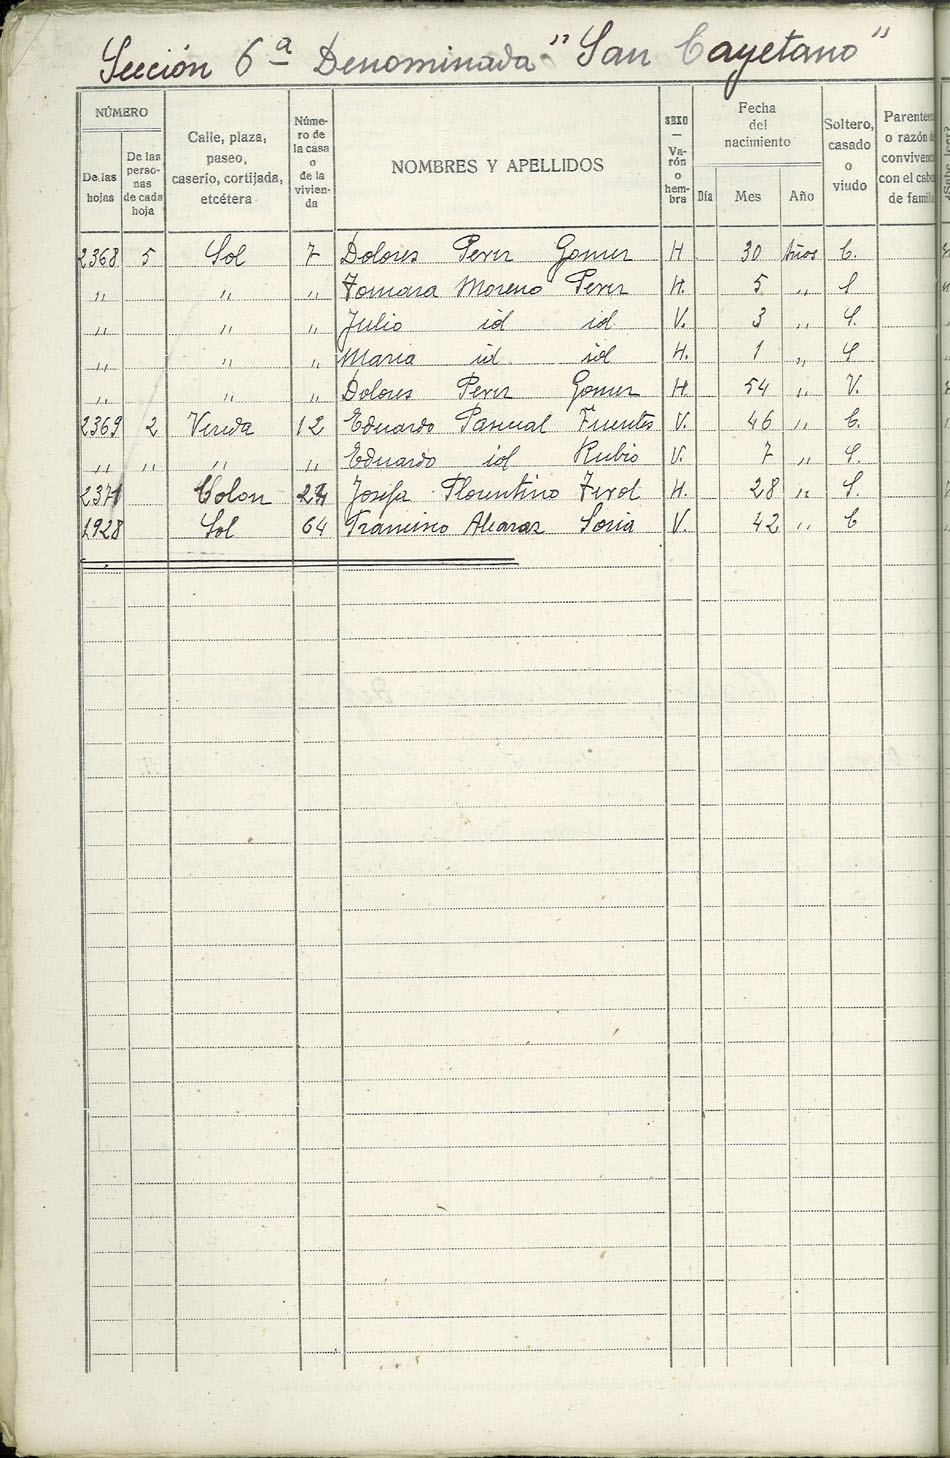 Sección 6ª Denominada "San Cayetano"
NÚMERO
De las hojas
De las perso- nas de cada hoja
Calle, plaza, paseo, caserío, cortijada, etcétera
Núme- ro de la casa o de la vivien- da
NOMBRES Y APELLIDOS
SEXO — Va- rón o hem- bra
Fecha del nacimiento
Día Mes Año
Soltero, casado o viudo
o razón
con el
de
2368 5 Sol 7 Dolores Perez Gomez H 30 Años C.
" " " Tomasa Moreno Perez H. 5 " S
" " " Julio id id. V. 3 " S.
" " " Maria id. id H. 1 " S
" " " Dolores Perez Gomez H. 54 " V.
2369 2 Vereda 12 Eduardo Pascual Fuentes V. 46 " C.
" " " " Eduardo id Rubio V. 7 " S.
2371 Colon Josefa Florentino H. 28 " S.
1928 Sol 64 Francisco Alcaraz Soria V. 42 " C